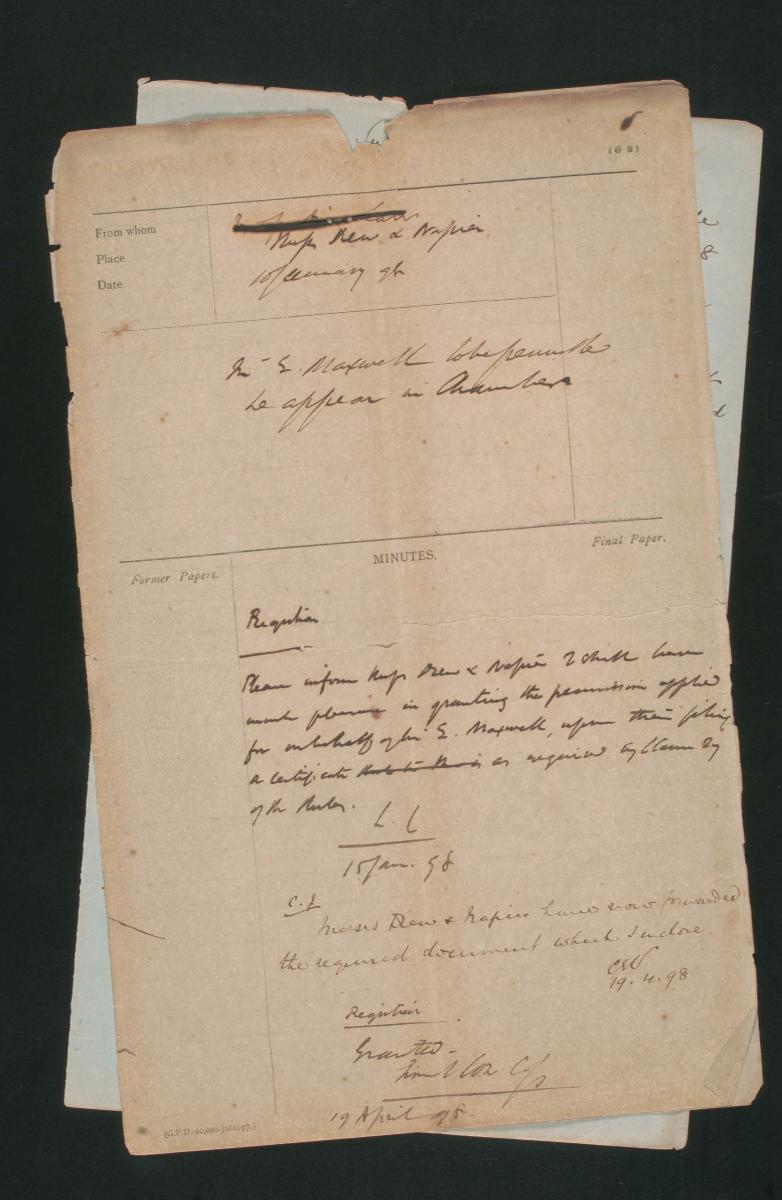 (G 8)
From whom
Place
Date
Messrs Drew & Napier
10 January 98
Mr E. Maxwell to be permitted
to appear in Chambers
Former Papers.
MINUTES.
Final Paper.
Registrar
Please inform Messrs Drew & Napier I shall have
much pleasure in granting the permission applied
for on behalf of Mr E. Maxwell, upon their filing
a certificate as required by Clause
of the Rules.
L. C
15 Jan. 98
C.J
Messrs Drew & Napier have now forwarded
the required document which I enclose.
19.4.98
Registrar
Granted.
Lionel Cox C.J.
19 April 98.
(G.P.D.-10,000-97.)